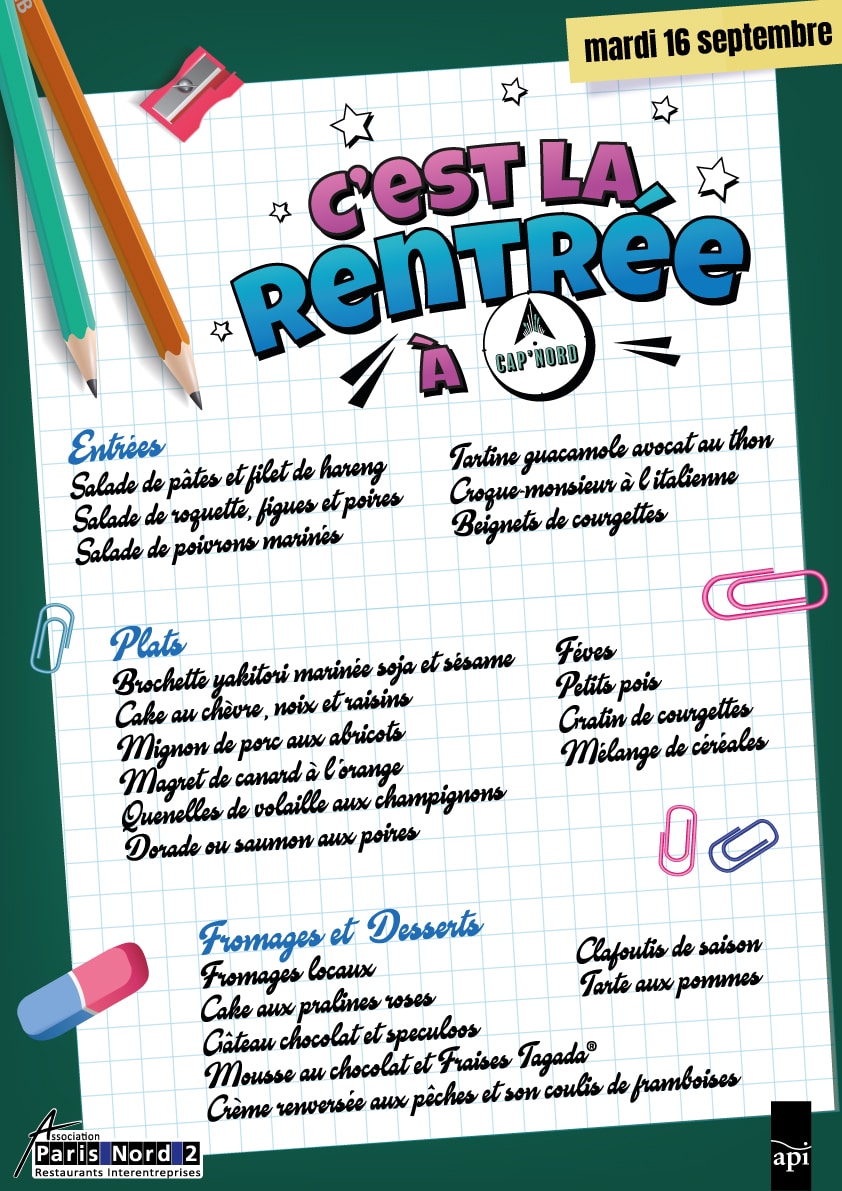 HB
mardi 16 septembre
C'est la
Rentrée
à CAP'NORD
Entrées
Salade de pâtes et filet de hareng
Salade de roquette, figues et poires
Salade de poivrons marinés
Tartine guacamole avocat au thon
Croque-monsieur à l'italienne
Beignets de courgettes
Plats
Brochette yakitori marinée soja et sésame
Cake au chèvre, noix et raisins
Mignon de porc aux abricots
Magret de canard à l'orange
Quenelles de volaille aux champignons
Dorade ou saumon aux poires
Fèves
Petits pois
Gratin de courgettes
Mélange de céréales
Fromages et Desserts
Fromages locaux
Cake aux pralines roses
Gâteau chocolat et speculoos
Mousse au chocolat et Fraises Tagada®
Crème renversée aux pêches et son coulis de framboises
Clafoutis de saison
Tarte aux pommes
Association
Paris Nord 2
Restaurants Interentreprises
api